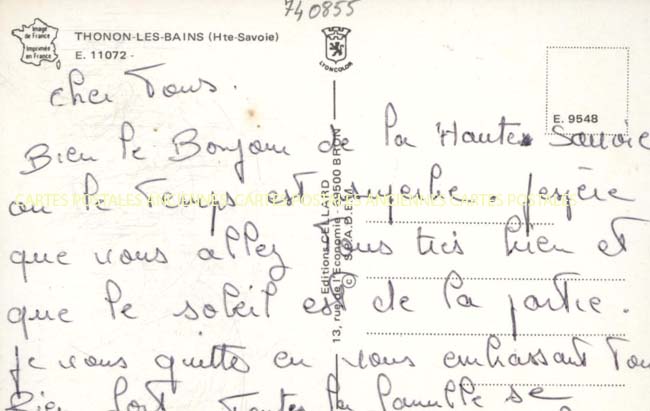 740855
Image de France
Imprimée en France
THONON-LES-BAINS (Hte-Savoie)
E. 11072 -
LYONCOLOR
E. 9548
Editions CELLARD
13, rue de l'Economie 69500 BRON
© S.P.A.D.E.M.
CARTES POSTALES ANCIENNES CARTES POSTALES ANCIENNES CARTES POSTALES
Cher Tous.
Bien le Bonjour de la Haute Savoie
ou le temps est superbe j'espère
que vous allez tous très bien et
que le soleil est de la partie.
je vous quitte en vous embrassant Tous
Bien fort. Toutes la famille se